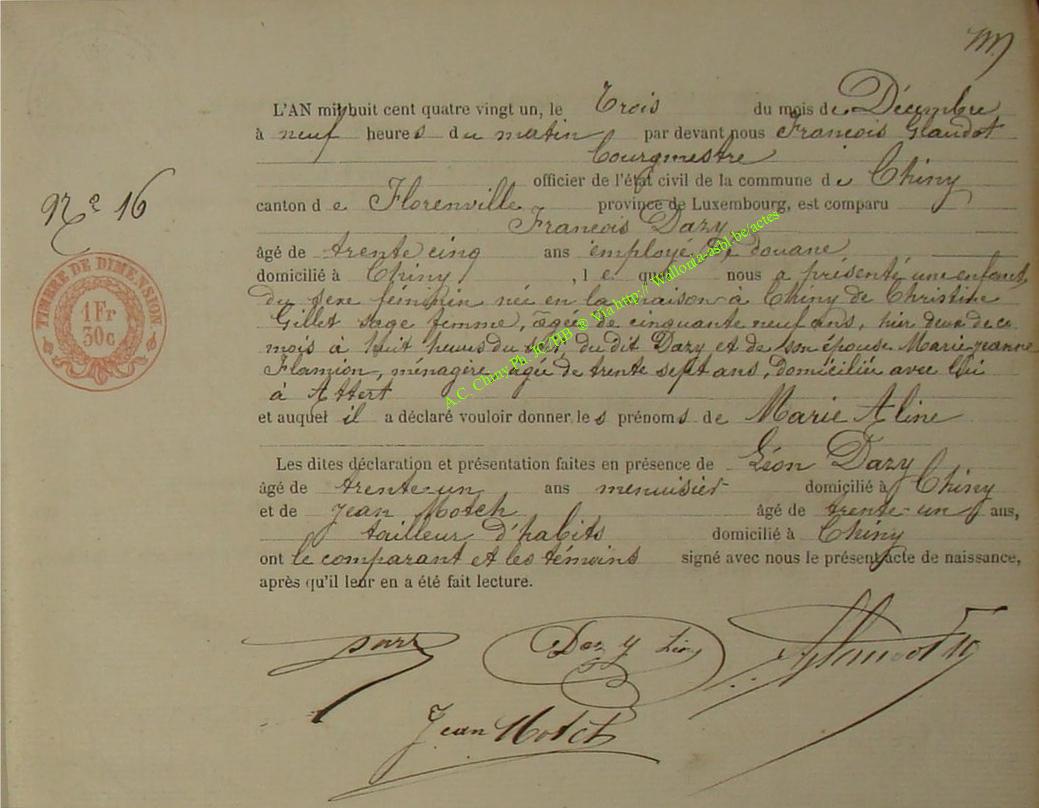 L'AN mil huit cent quatre vingt un, le Trois du mois de Décembre
à neuf heures du matin par devant nous François Glaudot
Bourgmestre
officier de l'état civil de la commune de Chiny
canton de Florenville province de Luxembourg, est comparu
Francois Dazy
âgé de trente cinq ans employé de douane
domicilié à Chiny, le quel nous a présenté une enfant
du sexe féminin née en la maison à Chiny de Christine
Gillet sage femme, âgée de cinquante neuf ans, hier deux de ce
mois à huit heures du soir, du dit Dazy et de son épouse Marie Jeanne
Flamion, ménagère, âgée de trente sept ans, domiciliée avec lui
à Attert
et auquel il a déclaré vouloir donner les prénoms de Marie Aline
Les dites déclaration et présentation faites en présence de Léon Dazy
âgé de trente-un ans menuisier domicilié à Chiny
et de Jean Motch âgé de trente-un ans,
tailleur d'habits domicilié à Chiny
ont le comparant et les témoins signé avec nous le présent acte de naissance,
après qu'il leur en a été fait lecture.
N° 16
TIMBRE DE DIMENSION.
1 Fr
30 c
Dazy Léon
Glaudot
Jean Motch
A.C. Chiny Ph. IC/BB ® Via http:// Wallonia-asbl.be/actes